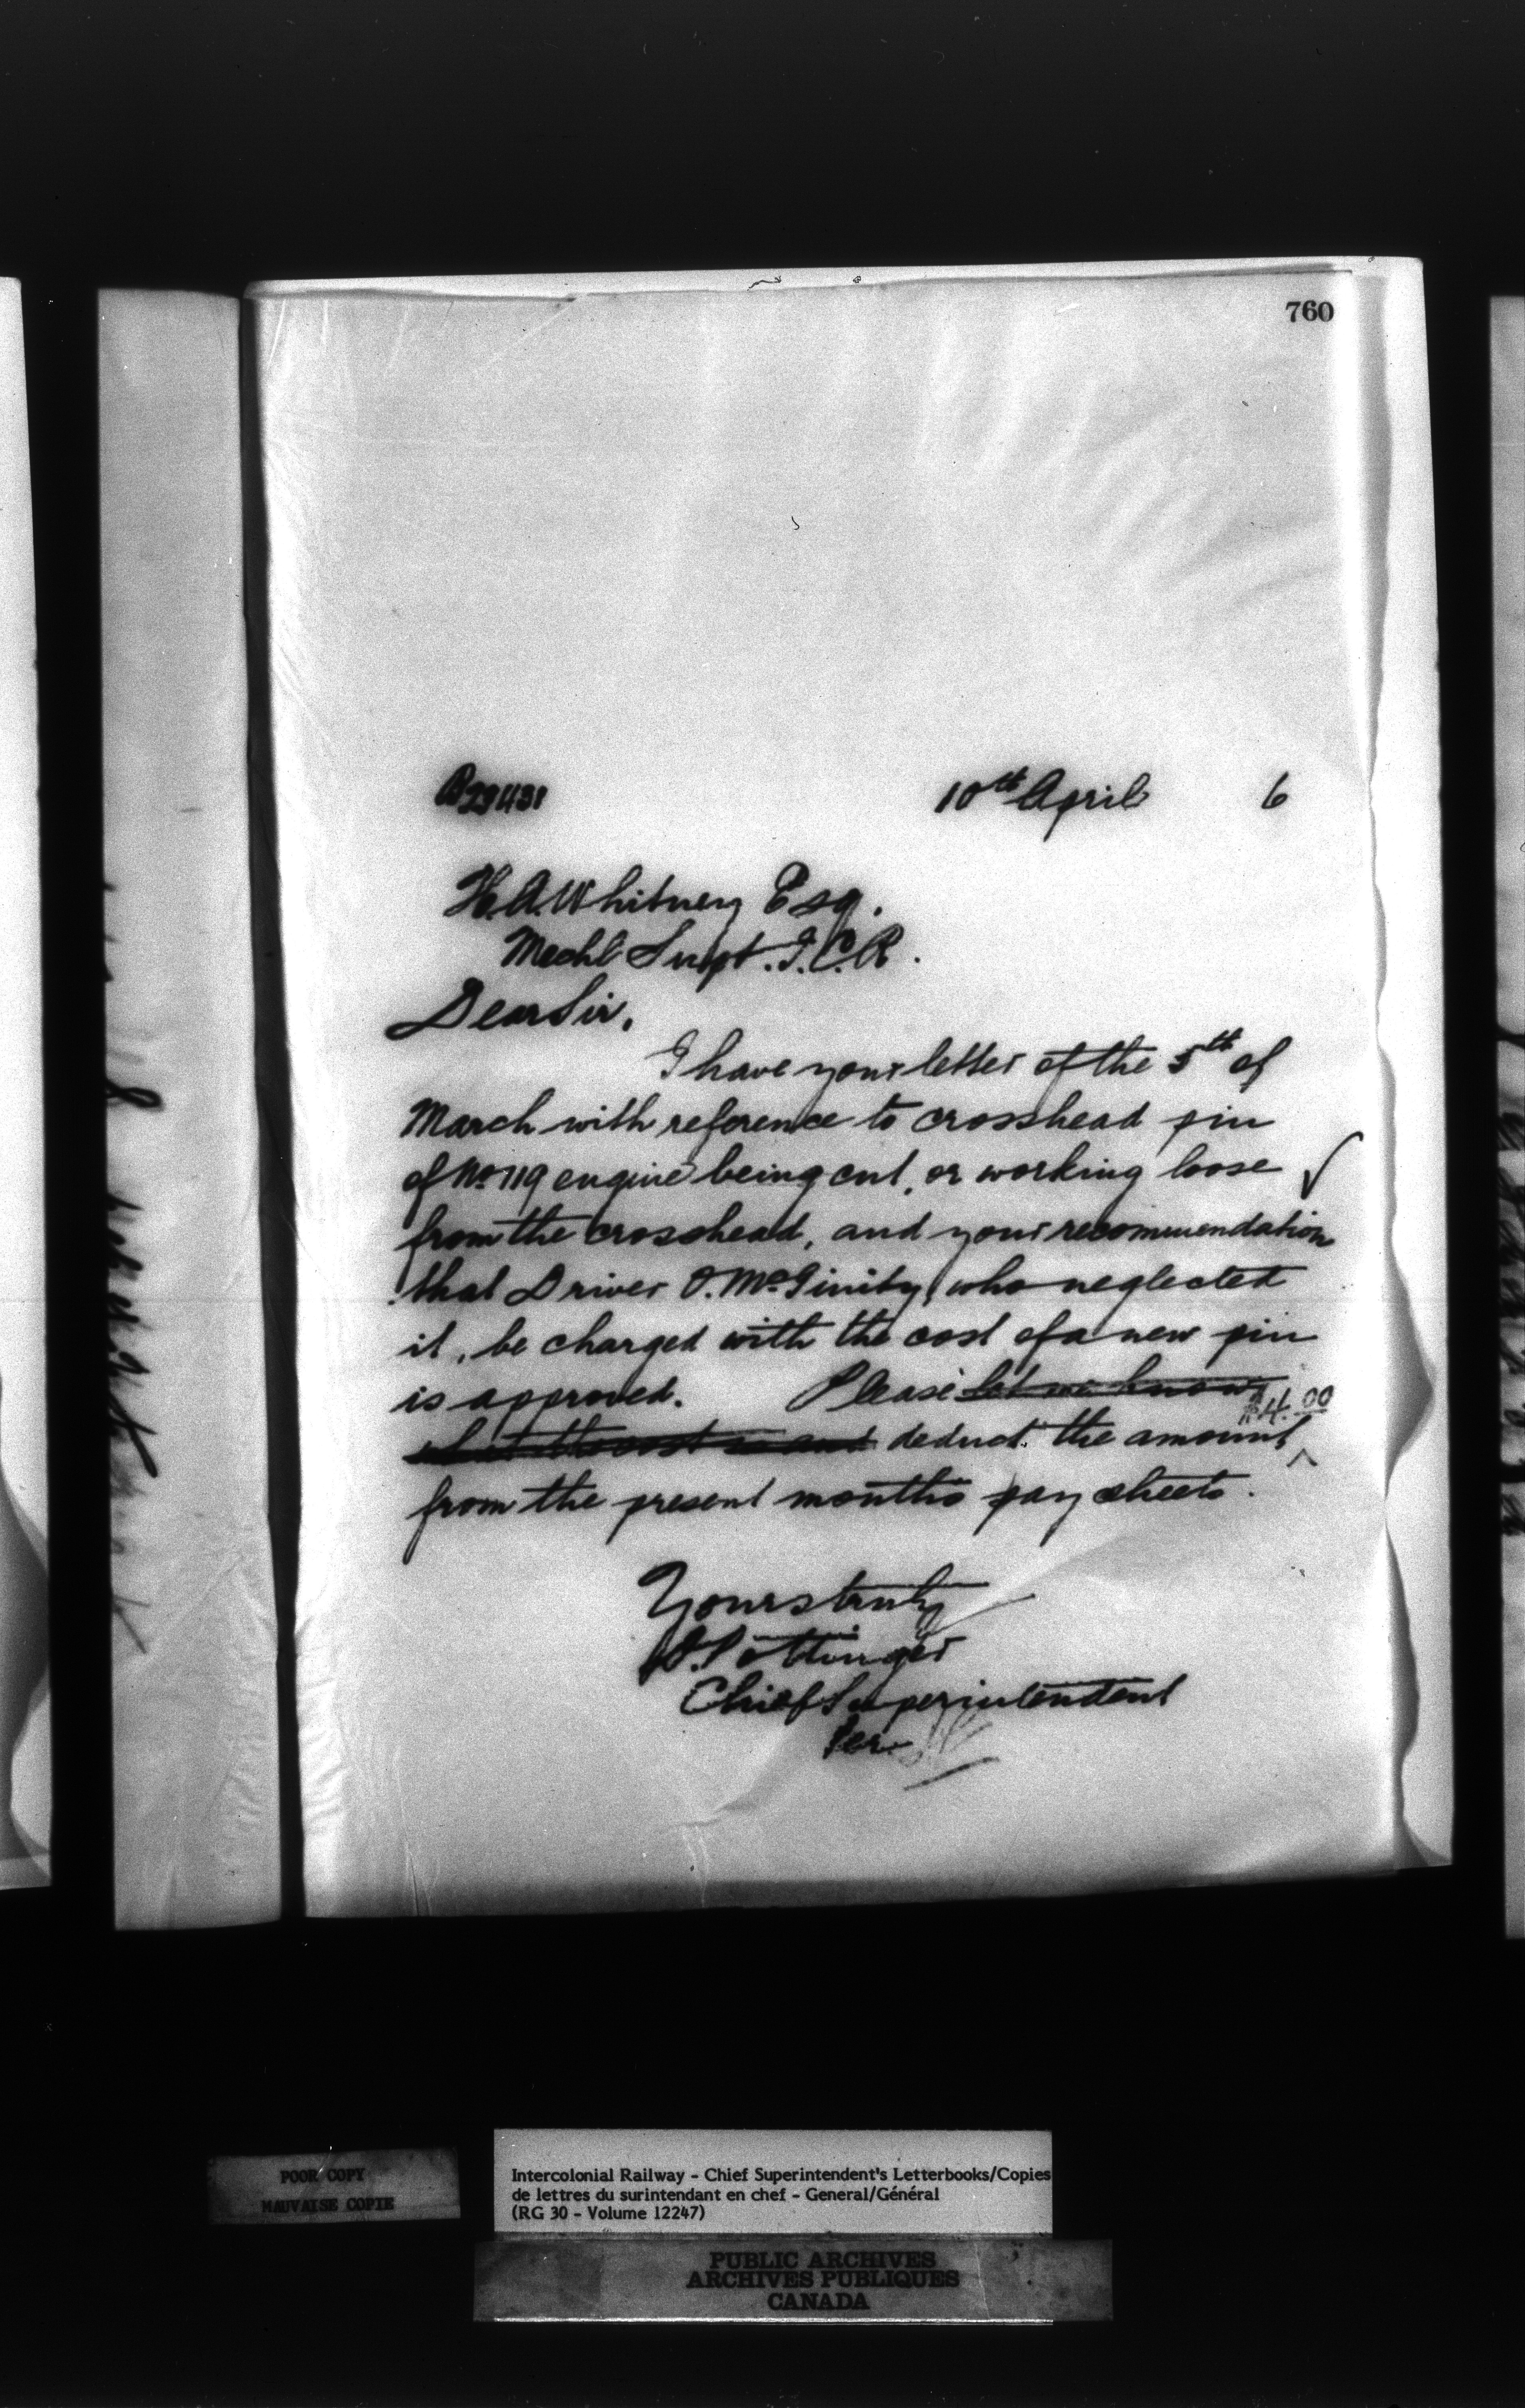 760
B29431 10th April 6
H.A. Whitney Esq.
Mechl Supt. I.C.R.
Dear Sir,
I have your letter of the 5th of
March with reference to crosshead pin
of No 119 engine being cut, or working loose
from the crosshead, and your recommendation
that Driver O. McGinity, who neglected
it, be charged with the cost of a new pin
is approved. Please let me know
what the cost is and deduct the amount $4.00
from the present months pay sheets.
Yours truly
D. Pottinger
Chief Superintendent
Per
POOR COPY
MAUVAISE COPIE
Intercolonial Railway - Chief Superintendent's Letterbooks/Copies
de lettres du surintendant en chef - General/Général
(RG 30 - Volume 12247)
PUBLIC ARCHIVES
ARCHIVES PUBLIQUES
CANADA